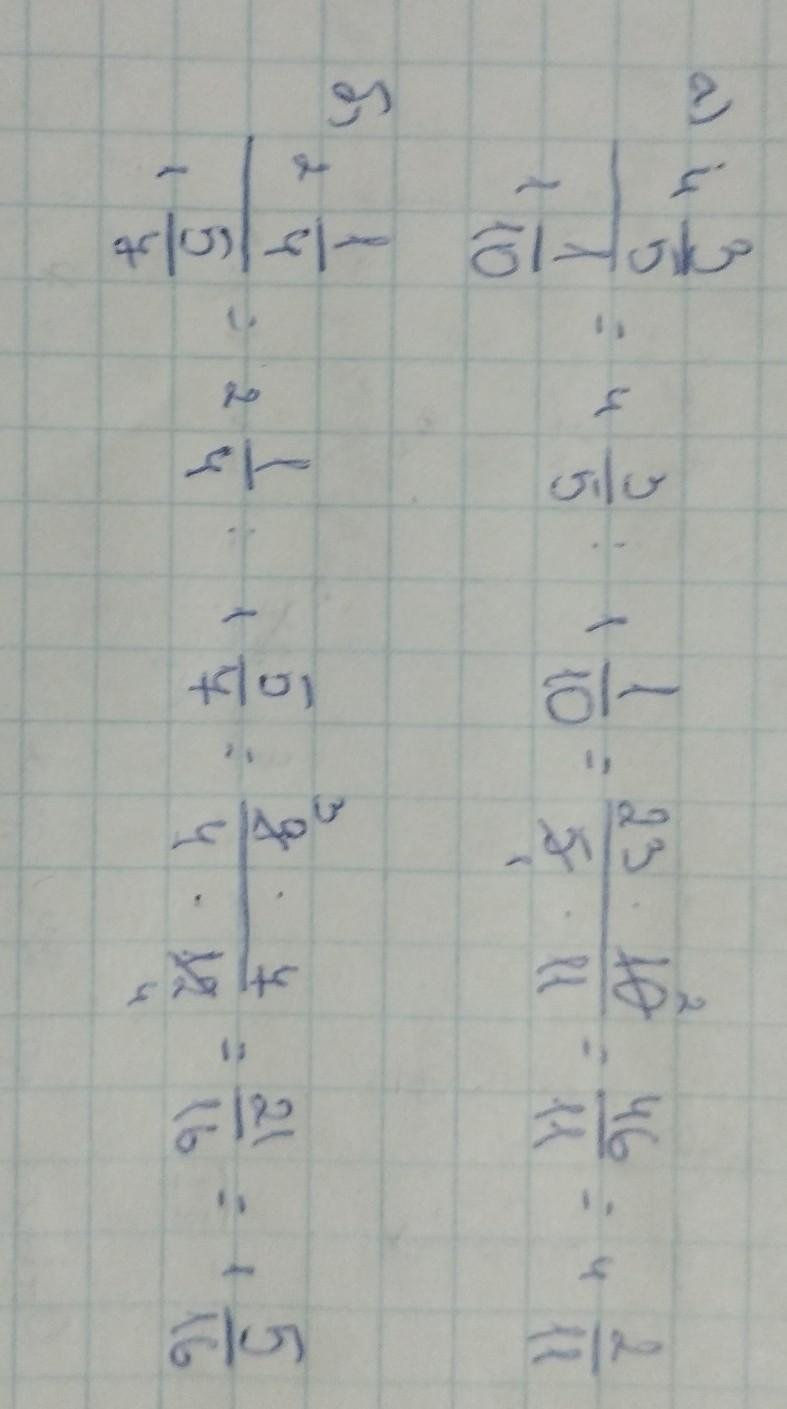 а) 4 3/5 / 1 1/10 = 4 3/5 : 1 1/10 = 23 · 10 2 / 5 1 · 11 = 46/11 = 4 2/11
б) 2 1/4 / 1 5/7 = 2 1/4 : 1 5/7 = 9 3 · 7 / 4 · 12 4 = 21/16 = 1 5/16